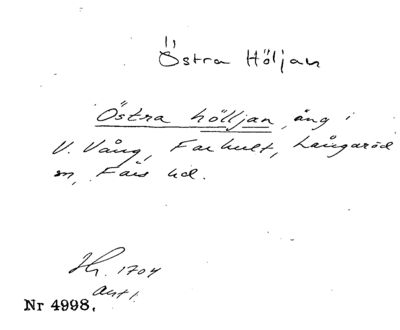 Östra Höljan
Östra hölljan, äng i
V. Vång, Farhult, Långaröd
sn, Färs hd.
Lh. 1704
akt 1.
Nr 4998.